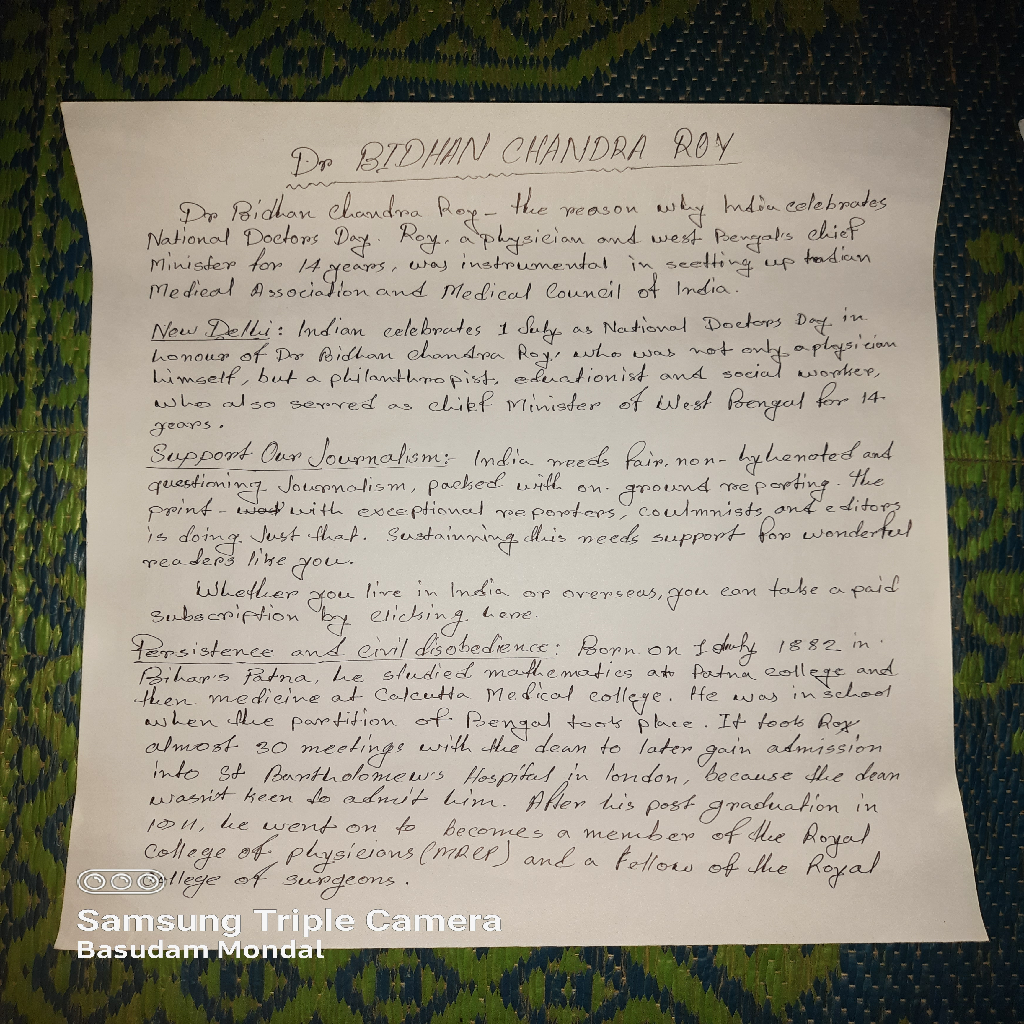 Dr BIDHAN CHANDRA ROY
Dr Bidhan Chandra Roy - the reason why India celebrates
National Doctors Day. Roy, a physician and west Bengal's chief
Minister for 14 years, was instrumental in seetting up Indian
Medical Association and Medical Council of India.
New Delhi: Indian celebrates 1 July as National Doctors Day in
honour of Dr Bidhan Chandra Roy, who was not only a physician
himself, but a philanthropist, eduationist and social worker,
who also served as chief Minister of West Bengal for 14
years.
Support Our Journalism:- India needs fair, non-hyhenoted and
questioning Journalism, packed with on ground reporting. The
print - with exceptional reporters, coulmnists and editors
is doing Just that. Sustainning this needs support for wonderful
readers like you.
Whether you live in India or overseas, you can take a paid
subscription by clicking here.
Persistence and civil disobedience: Born on 1 July 1882 in
Bihar's Patna, he studied mathematics at Patna college and
then medicine at Calcutta Medical college. He was in school
when the partition of Bengal took place. It took Roy
almost 30 meetings with the dean to later gain admission
into St Bartholomew's Hospital in london, because the dean
wasn't keen to admit him. After his post graduation in
1911, he went on to becomes a member of the Royal
college of physicians (MRCP) and a Fellow of the Royal
college of surgeons.
Samsung Triple Camera
Basudam Mondal